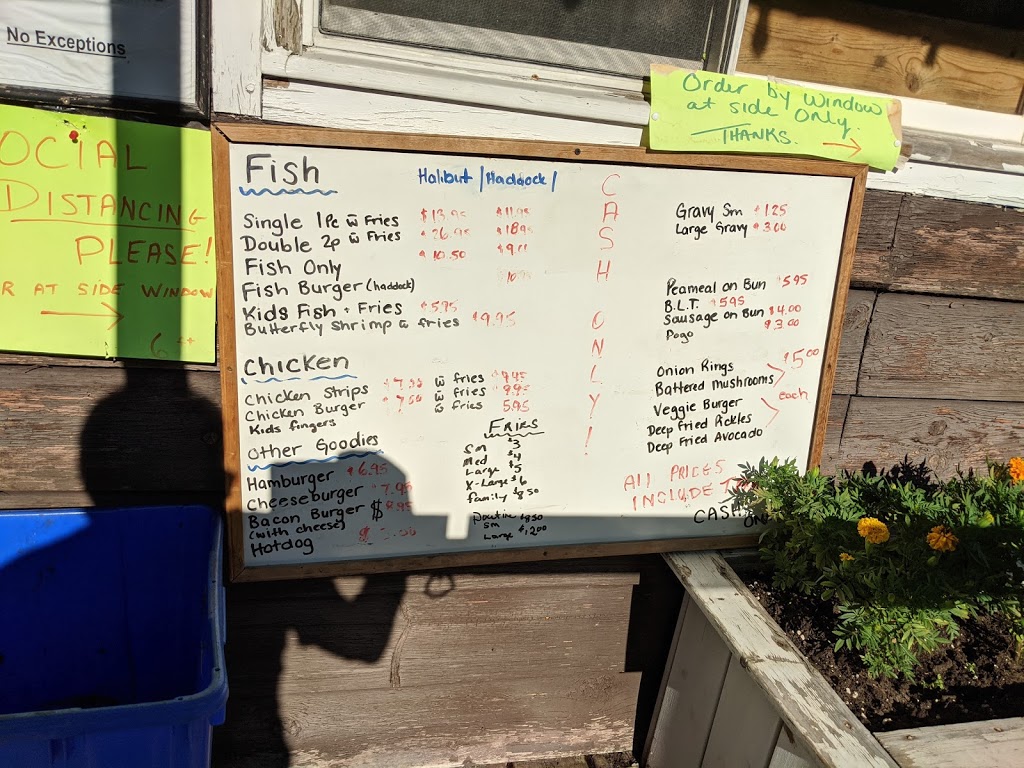 No Exceptions
OCIAL
DISTANCING
PLEASE!
R AT SIDE WINDOW
6
Order by window
at side only.
THANKS.
Fish
Halibut / Haddock /
CASH ONLY!
Single 1Pc w Fries $13.95 $11.95
Double 2p w Fries $26.95 $18.95
Fish Only $10.50
Fish Burger (haddock) 10.95
Kids Fish + Fries $5.95
Butterfly Shrimp w fries $9.95
Chicken
Chicken Strips w fries
Chicken Burger w fries
Kids fingers w fries 5.95
Other Goodies
Hamburger $6.95
Cheeseburger 7.95
Bacon Burger $8.95
(with cheese)
Hotdog
FRIES
Sm $3
Med $4
Large $5
X-Large $6
Family $8.50
Poutine
Sm $8.50
Large $12.00
Gravy Sm $1.25
Large Gravy $3.00
Peameal on Bun $5.95
B.L.T. $5.95
Sausage on Bun $4.00
Pogo $3.00
Onion Rings
Battered mushrooms $5.00
Veggie Burger each
Deep Fried Pickles
Deep Fried Avocado
All PRICES
INCLUDE
CASH